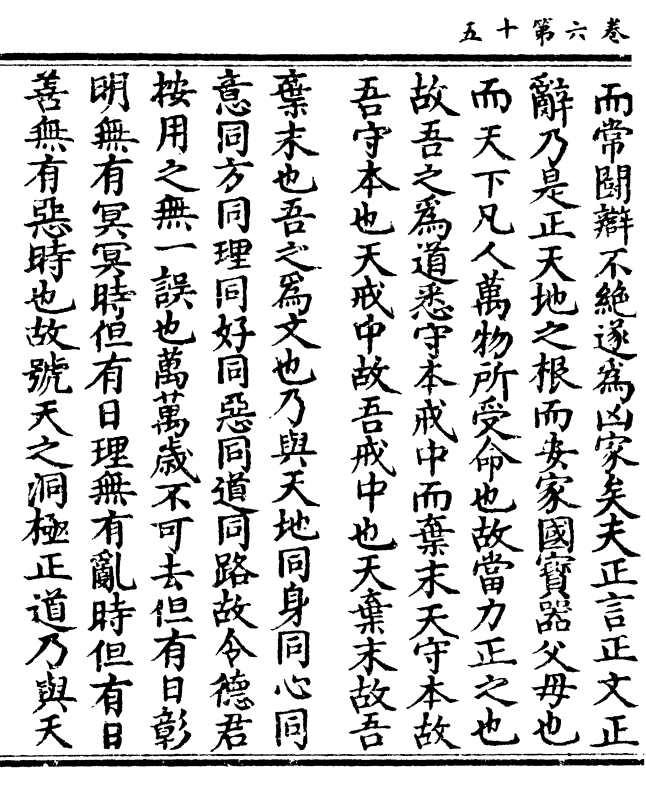 卷六第十五
而常鬪辯不絕遂為凶家矣夫正言正文正
辭乃是正天地之根而安家國寶器父母也
而天下凡人萬物所受命也故當力正之也
故吾之為道悉守本戒中而棄末天守本故
吾守本也天戒中故吾戒中也天棄末故吾
棄末也吾之為文也乃與天地同身同心同
意同方同理同好同惡同道同路故令德君
桉用之無一誤也萬萬歲不可去但有日彰
明無有冥冥時但有日理無有亂時但有日
善無有惡時也故號天之洞極正道乃與天